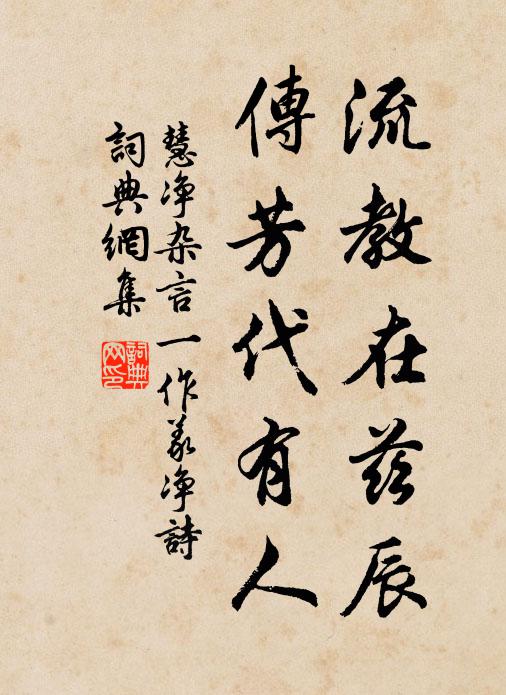 流教在茲辰
傳芳代有人
慧净杂言一作義净詩
詞典網集
詞典网印